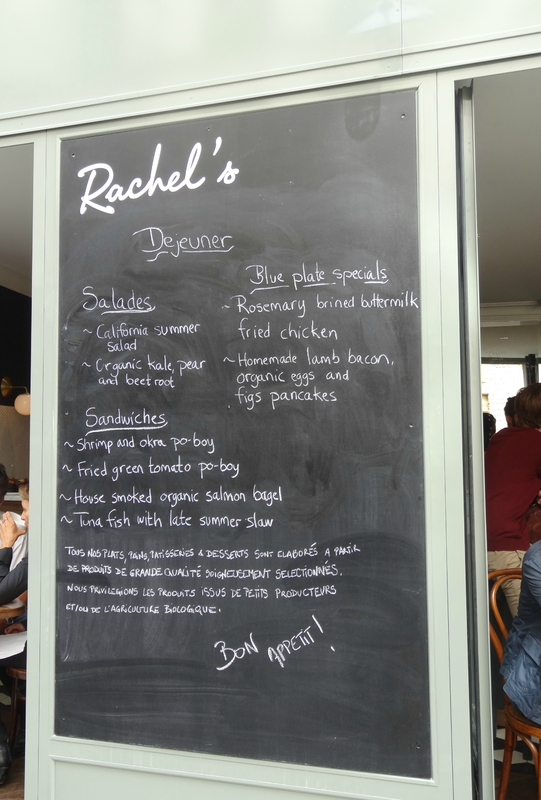 Rachel's
Dejeuner
Salades
~ California summer
salad
~ Organic kale, pear
and beetroot
Blue plate specials
~ Rosemary brined buttermilk
fried chicken
~ Homemade lamb bacon,
organic eggs and
figs pancakes
Sandwiches
~ Shrimp and okra po-boy
~ Fried green tomato po-boy
~ House smoked organic salmon bagel
~ Tuna fish with late summer slaw
TOUS NOS PLATS, PAINS, PATISSERIES & DESSERTS SONT ELABORÉS A PARTIR
DE PRODUITS DE GRANDE QUALITÉ SOIGNEUSEMENT SELECTIONNÉS.
NOUS PRIVILEGIONS LES PRODUITS ISSUS DE PETITS PRODUCTEURS
ET/OU DE L'AGRICULTURE BIOLOGIQUE.
BON APPETIT!